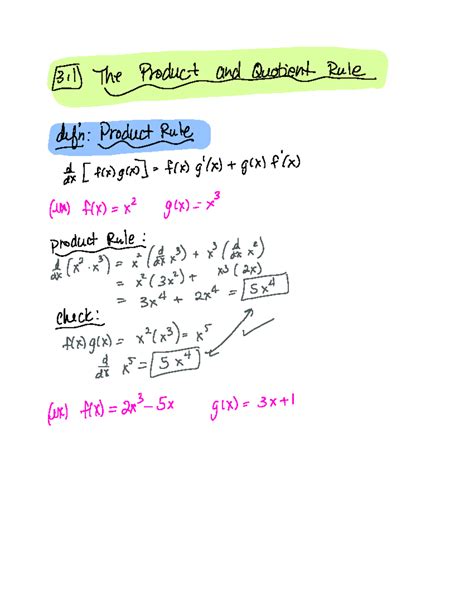 3.1 The Product and Quotient Rule
def'n: Product Rule
d/dx [f(x)g(x)] = f(x) g'(x) + g(x) f'(x)
(ex) f(x) = x² g(x) = x³
product Rule:
d/dx (x² · x³) = x² (d/dx x³) + x³ (d/dx x²)
= x² (3x²) + x³ (2x)
= 3x⁴ + 2x⁴ = 5x⁴
check:
f(x)g(x) = x²(x³) = x⁵
d/dx x⁵ = 5x⁴
(ex) f(x) = 2x³ - 5x g(x) = 3x+1